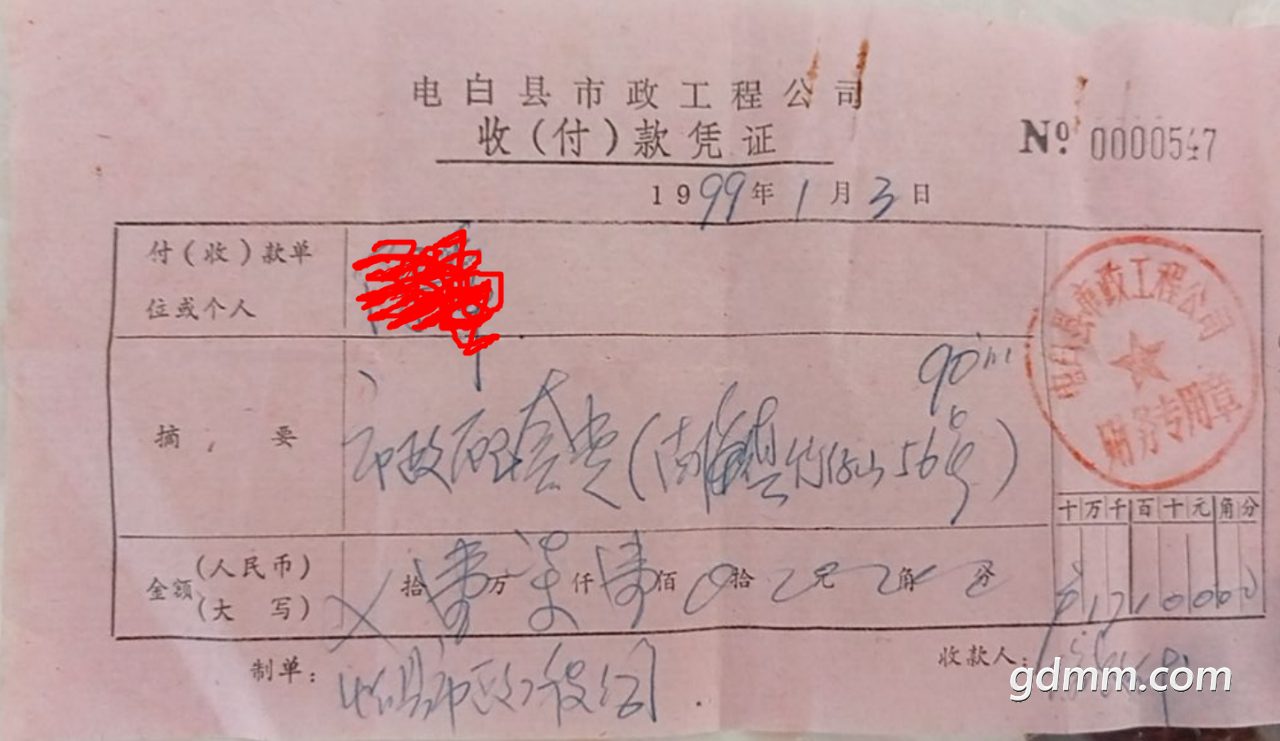 电白县市政工程公司
收(付)款凭证
Nº 0000547
1999年1月3日
付(收)款单
位或个人
电白县市政工程公司
财务专用章
90
摘要
市政配套费(南海镇竹仔山56号)
十万千百十元角分
金额(人民币)(大写)
拾壹万柒仟壹佰0拾0元0角0分
¥1710000
制单:
电白县市政工程公司
收款人:
gdmm.com